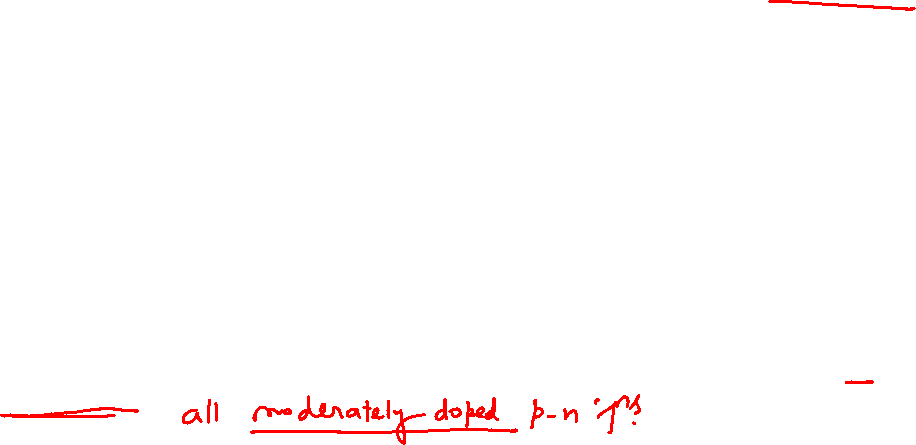 all moderately doped p-n jns